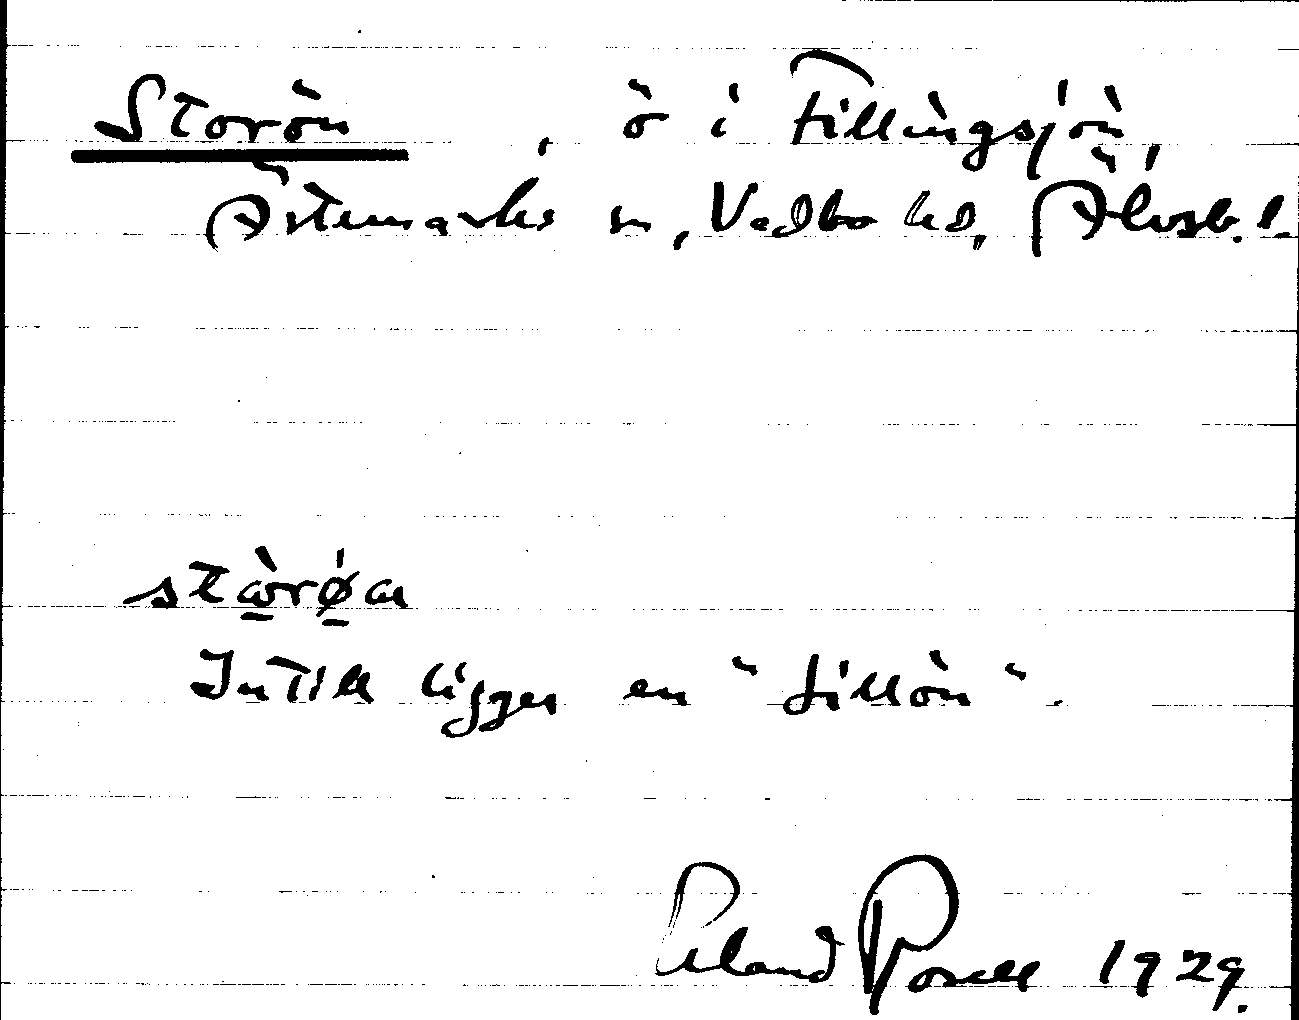 Storön, ö i Fillingsjön,
Ärtemarks sn, Vedbo hd, Älvsb. l.
stωrøa
Intill ligger en "Lillön".
Erland Rosell 1929.